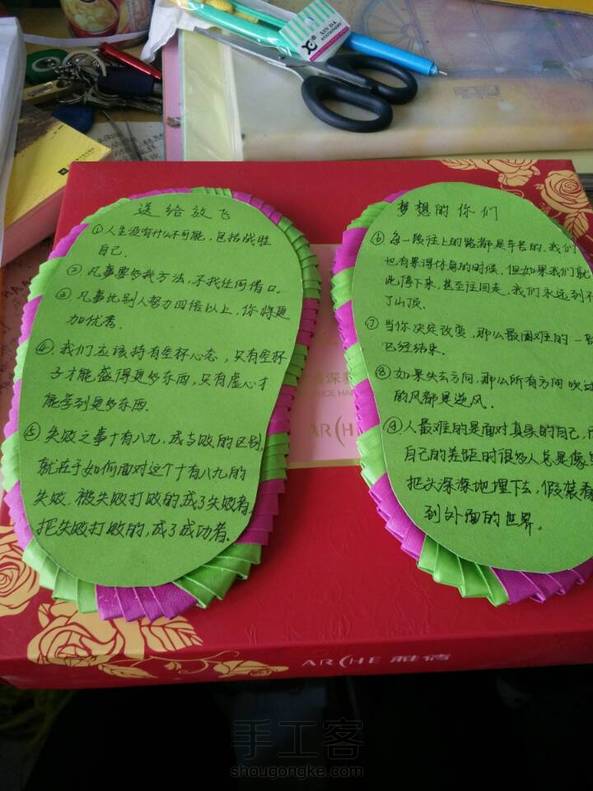 送给放飞
①人生没有什么不可能，包括战胜
自己.
②凡事要多找方法，不找任何借口.
③凡事比别人努力四倍以上，你将更
加优秀.
④.我们应该持有空杯心态，只有空杯
子才能盛得更多东西，只有虚心才
能学到更多东西.
⑤失败之事十有八九，成与败的区别
就在于如何面对这个十有八九的
失败.被失败打败的，成了失败者，
把失败打败的，成了成功者.
梦想的你们
⑥每一段往上的路都是辛苦的，我们
也有累得休息的时候，但如果我们就
此停下来，甚至往回走，我们永远到不
了山顶.
⑦当你决定改变，那么最困难的一
已经结束.
⑧如果失去方向，那么所有方向吹
的风都是逆风.
⑨人最难的是面对真实的自己，
自己的差距时很多人总是像
把头深深地埋下去，假装看
到外面的世界。
ARCHE 雅倩
手工客
shougongke.com